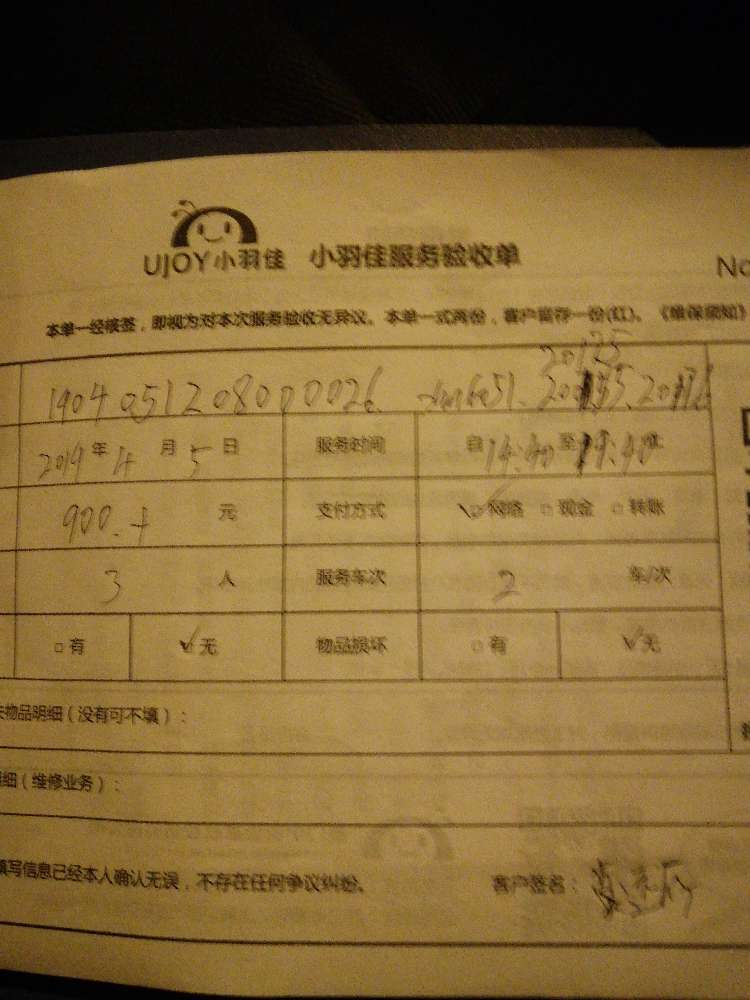 UJOY小羽佳 小羽佳服务验收单
No
本单一经核签，即视为对本次服务验收无异议。本单一式两份，客户留存一份(红)。《维保须知》
20175
19040512080000026
2019年4月5日 服务时间 自14:40至
900. 元 支付方式 ☑网络 □现金 □转账
3 人 服务车次 2 车/次
□有 ☑无 物品损坏 □有 ☑无
物品明细（没有可不填）：
细（维修业务）：
填写信息已经本人确认无误，不存在任何争议纠纷。 客户签名：